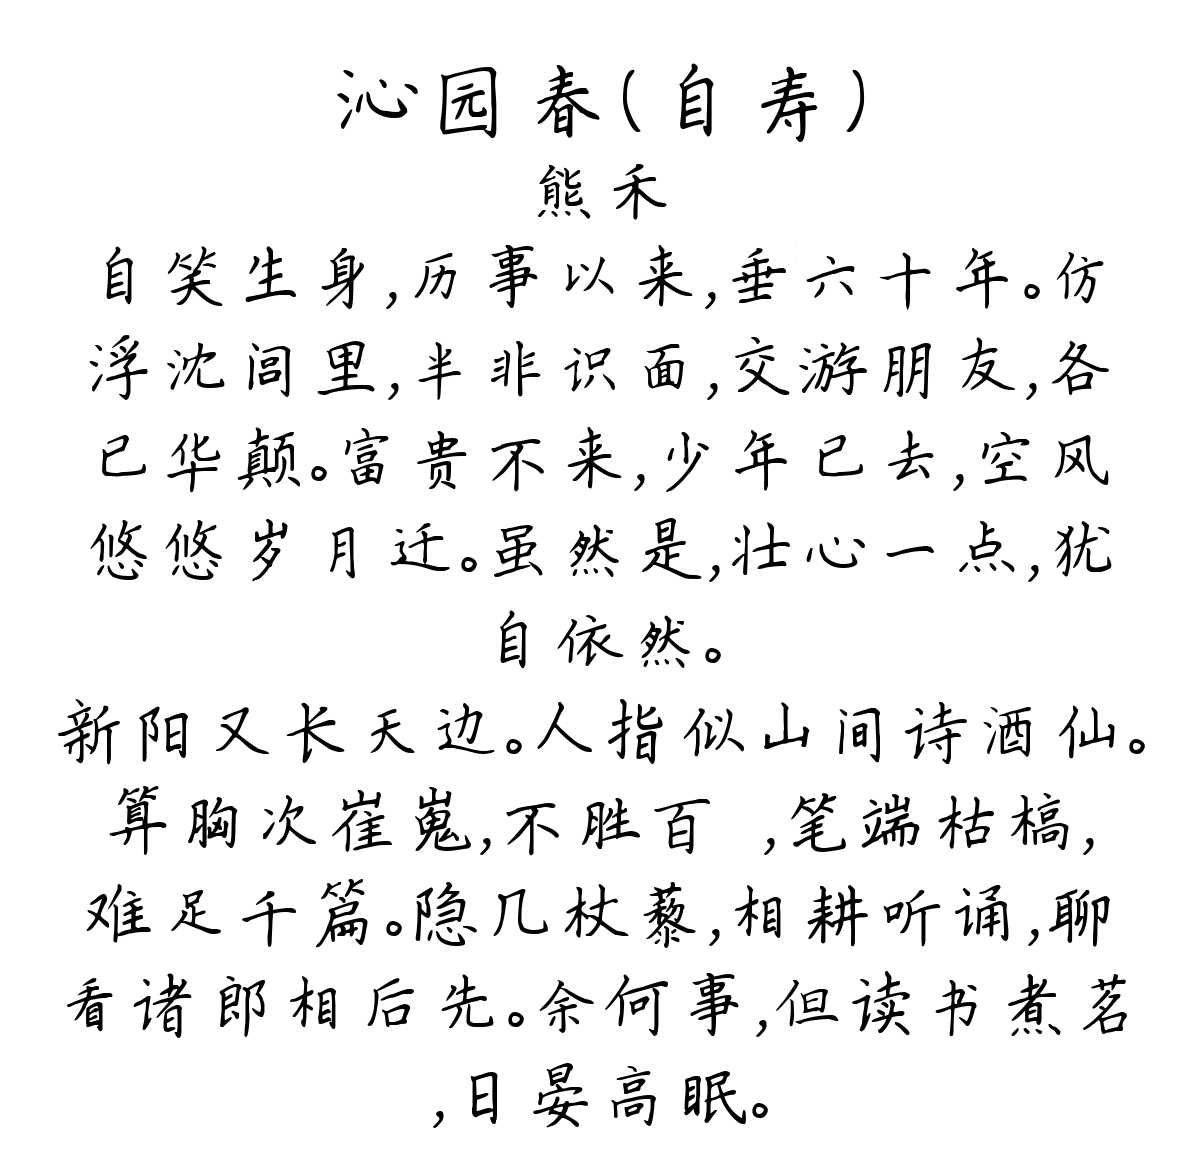 沁园春(自寿)
熊禾
自笑生身,历事以来,垂六十年。仿
浮沈闾里,半非识面,交游朋友,各
已华颠。富贵不来,少年已去,空风
悠悠岁月迁。虽然是,壮心一点,犹
自依然。
新阳又长天边。人指似山间诗酒仙。
算胸次崔嵬,不胜百 ,笔端枯槁,
难足千篇。隐几杖藜,相耕听诵,聊
看诸郎相后先。余何事,但读书煮茗
,日晏高眠。